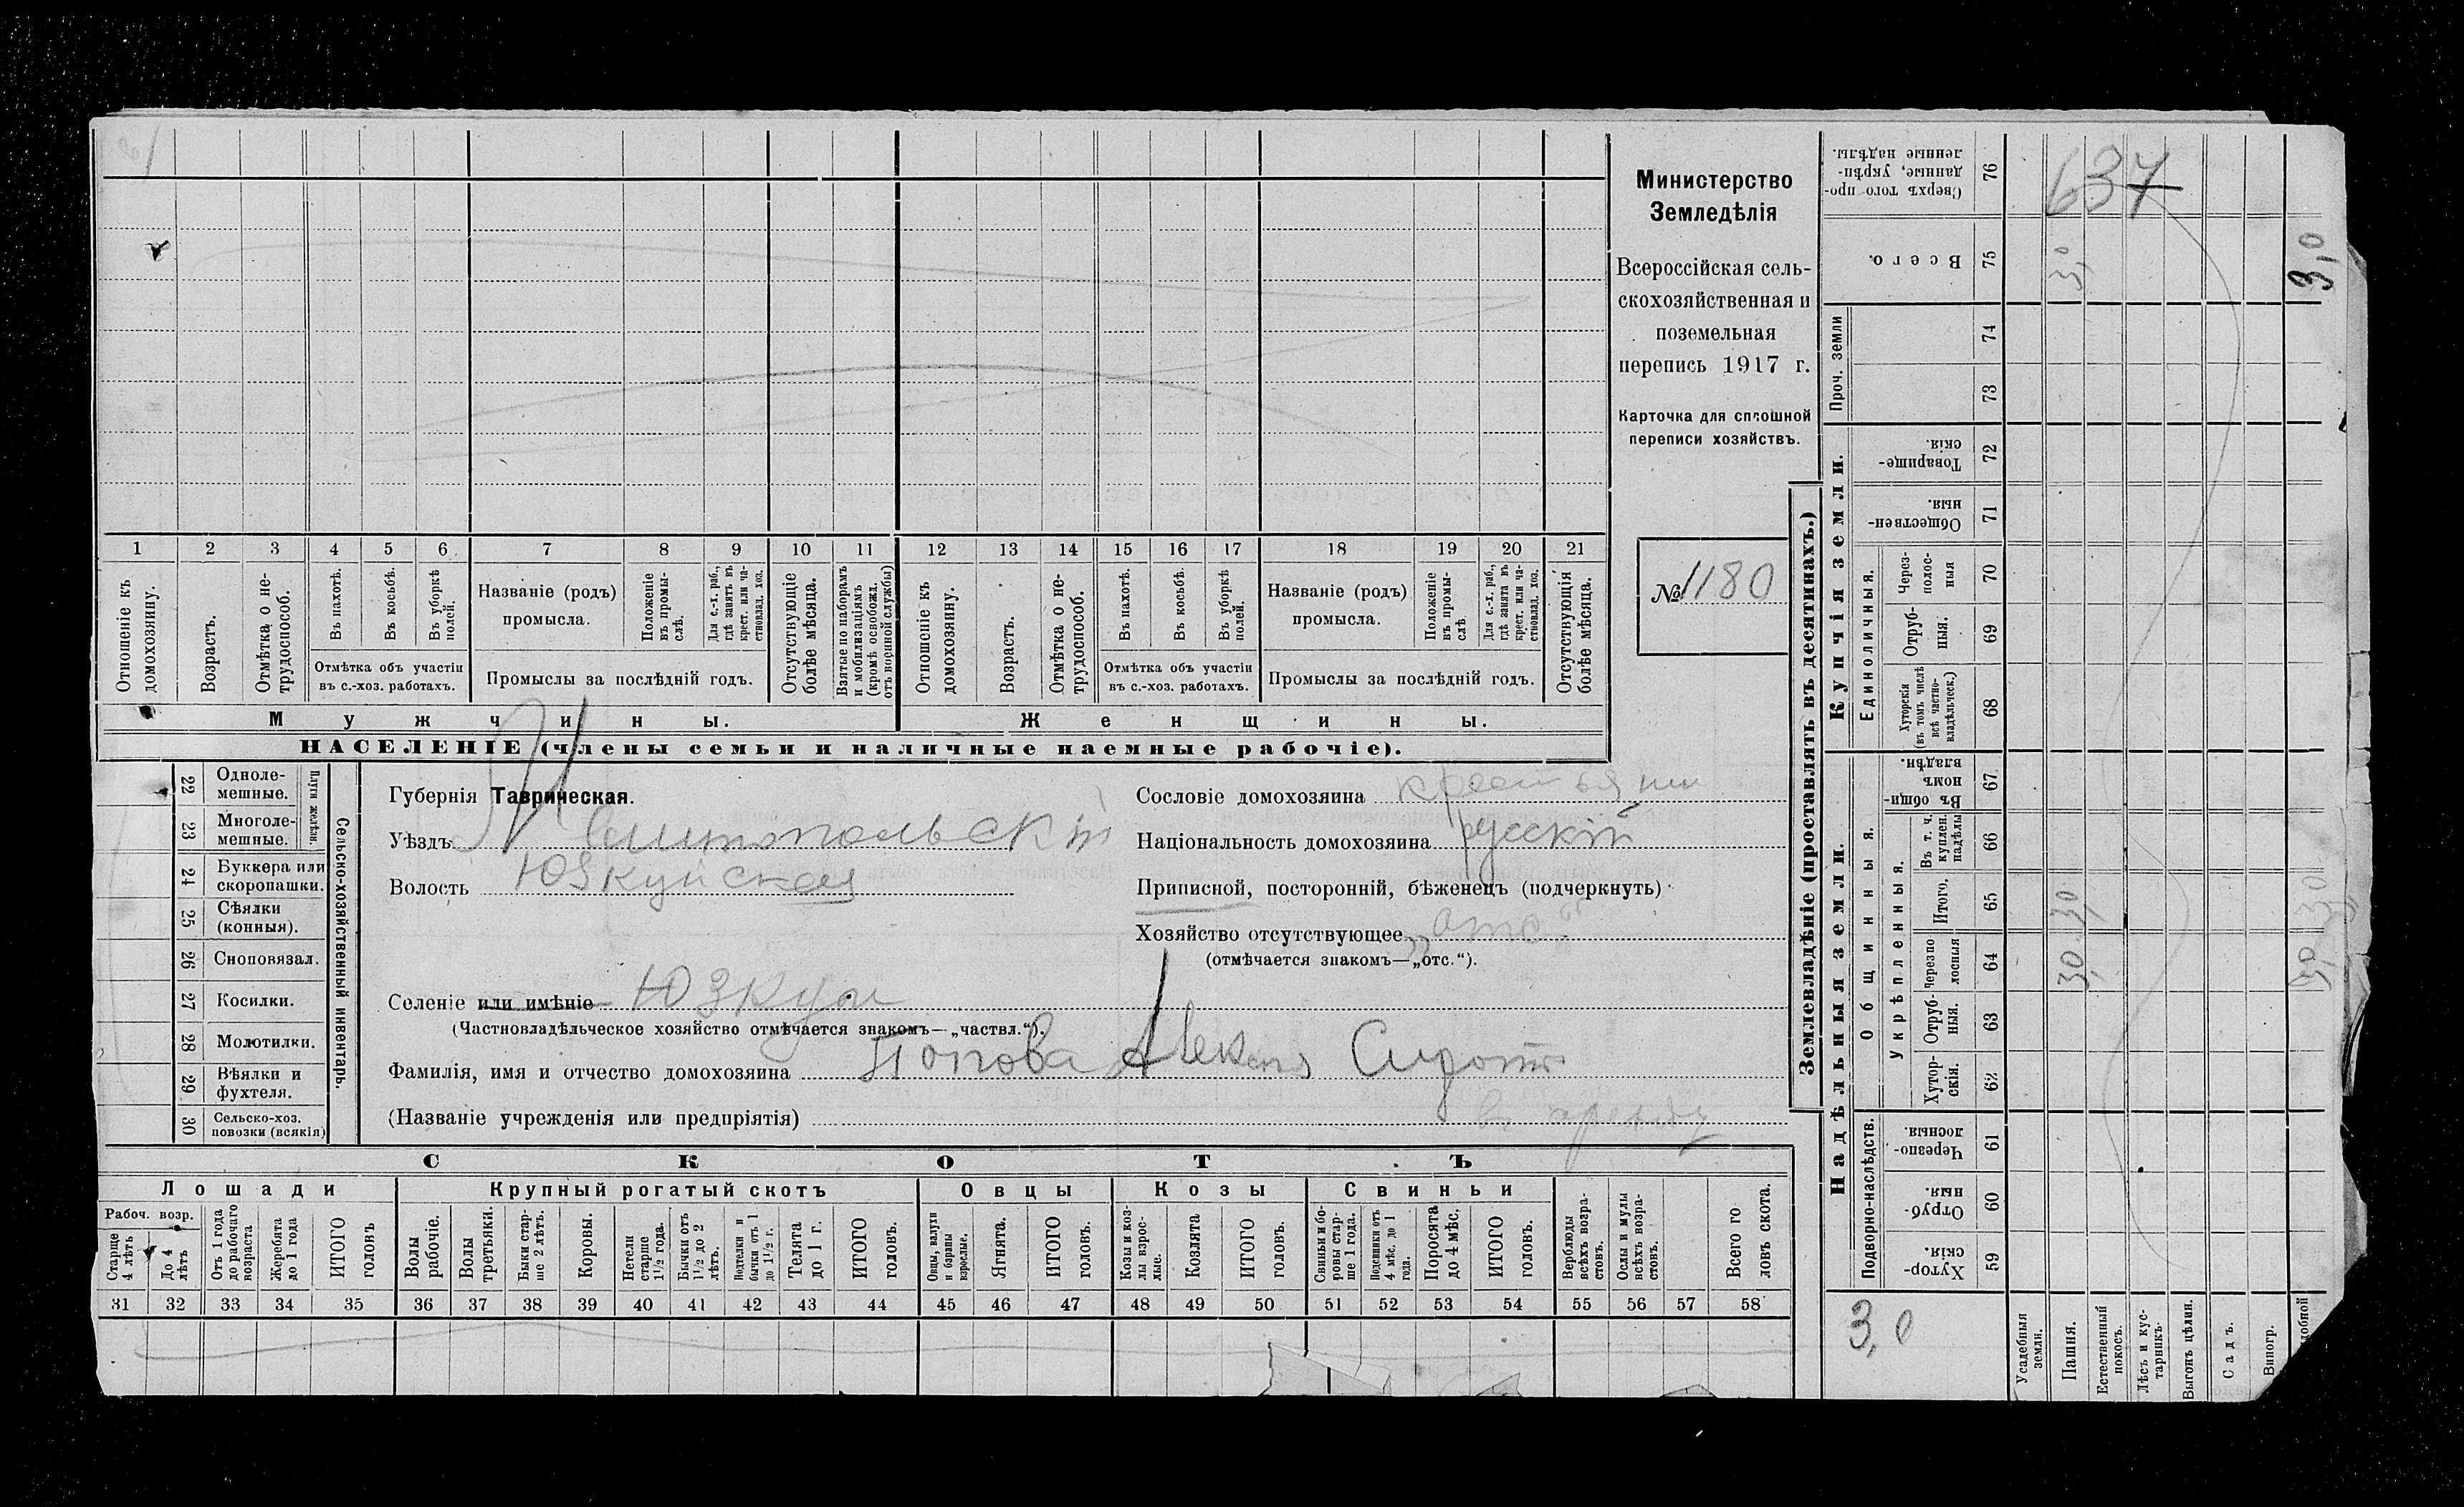 Министерство
Земледѣлія
Всероссійская сель-
скохозяйственная и
поземельная
перепись 1917 г.
Карточка для сплошной
переписи хозяйствъ.
№ 1180
1 2 3 4 5 6 7 8 9 10 11 12 13 14 15 16 17 18 19 20 21
Отношеніе къ домохозяину.
Возрастъ.
Отмѣтка о не-трудоспособ.
Въ пахотѣ.
Въ косьбѣ.
Въ уборкѣ полей.
Отмѣтка объ участіи
въ с.-хоз. работахъ.
Названіе (родъ)
промысла.
Положеніе въ промы-слѣ.
Для с.-х. раб., гдѣ занятъ въ крест. или ча-стновлад. хоз.
Промыслы за послѣдній годъ.
Отсутствующіе болѣе мѣсяца.
Взятые по наборамъ и мобилизаціямъ (кромѣ освобожд. отъ военной службы)
Отношеніе къ домохозяину.
Возрастъ.
Отмѣтка о не-трудоспособ.
Въ пахотѣ.
Въ косьбѣ.
Въ уборкѣ полей.
Отмѣтка объ участіи
въ с.-хоз. работахъ.
Названіе (родъ)
промысла.
Положеніе въ промы-слѣ.
Для с.-х. раб., гдѣ занята въ крест. или ча-стновлад. хоз.
Промыслы за послѣдній годъ.
Отсутствующія болѣе мѣсяца.
Мужчины.
Женщины.
НАСЕЛЕНІЕ (члены семьи и наличные наемные рабочіе).
Сельско-хозяйственный инвентарь.
Плуги желѣзн.
22 Одноле-мешные.
23 Многоле-мешные.
24 Буккера или скоропашки.
25 Сѣялки (конныя).
26 Сноповязал.
27 Косилки.
28 Молотилки.
29 Вѣялки и фухтеля.
30 Сельско-хоз. повозки (всякія)
Губернія Таврическая.
Уѣздъ Мелитопольскій
Волость Юзкуйская
Селеніе или имѣніе Юзкуи
(Частновладѣльческое хозяйство отмѣчается знакомъ—„частвл.“).
Фамилія, имя и отчество домохозяина Попова Алекс Сирота
(Названіе учрежденія или предпріятія)
в аренду
Сословіе домохозяина крестьянин
Національность домохозяина русскій
Приписной, посторонній, бѣженецъ (подчеркнуть)
Хозяйство отсутствующее „отс“
(отмѣчается знакомъ—„отс.“).
СКОТЪ
Лошади
Крупный рогатый скотъ
Овцы
Козы
Свиньи
Рабоч. возр.
Старше 4 лѣтъ
До 4 лѣтъ
Отъ 1 года до рабочаго возраста
Жеребята до 1 года
ИТОГО головъ
Волы рабочіе.
Волы третьяки.
Быки стар-ше 2 лѣтъ.
Коровы.
Нетели старше 1½ года.
Бычки отъ 1½ до 2 лѣтъ.
Подтелки и бычки отъ 1 до 1½ г.
Телята до 1 г.
ИТОГО головъ.
Овцы, валухи и бараны взрослые.
Ягнята.
ИТОГО головъ.
Козы и коз-лы взрос-лые.
Козлята
ИТОГО головъ.
Свиньи и бо-ровы стар-ше 1 года.
Подсвинки отъ 4 мѣс. до 1 года.
Поросята до 4 мѣс.
ИТОГО головъ.
Верблюды всѣхъ возра-стовъ.
Ослы и мулы всѣхъ возра-стовъ.
Всего го ловъ скота.
31 32 33 34 35 36 37 38 39 40 41 42 43 44 45 46 47 48 49 50 51 52 53 54 55 56 57 58
Землевладѣніе (проставлять въ десятинахъ.)
Надѣльныя земли.
Купчія земли.
Проч. земли
Сверхъ того про-данные, укрѣп-ленные надѣлы. 76
637
Всего. 75
3,0
3,0
74
73
Товарище-скія. 72
Обществен-ныя. 71
Единоличныя.
Через-полос-ныя 70
Отруб-ныя. 69
Хуторскія (въ томъ числѣ всѣ частно-владѣльческ.) 68
Общинныя.
Въ общи-номъ владѣн. 67
Укрѣпленныя.
Въ т. ч. куплен. надѣлы 66
Итого. 65
3,0
3,0
Черезпо лосныя 64
3,0
3,0
Отруб-ныя. 63
Хутор-скія. 62
Подворно-наслѣдств.
Черезпо-лосныя. 61
Отруб-ныя. 60
Хутор-скія. 59
3,0
Усадебныя земли.
Пашня.
Естественный покосъ.
Лѣсъ и кус-тарникъ.
Выгонъ цѣлин.
Садъ.
Виногр.